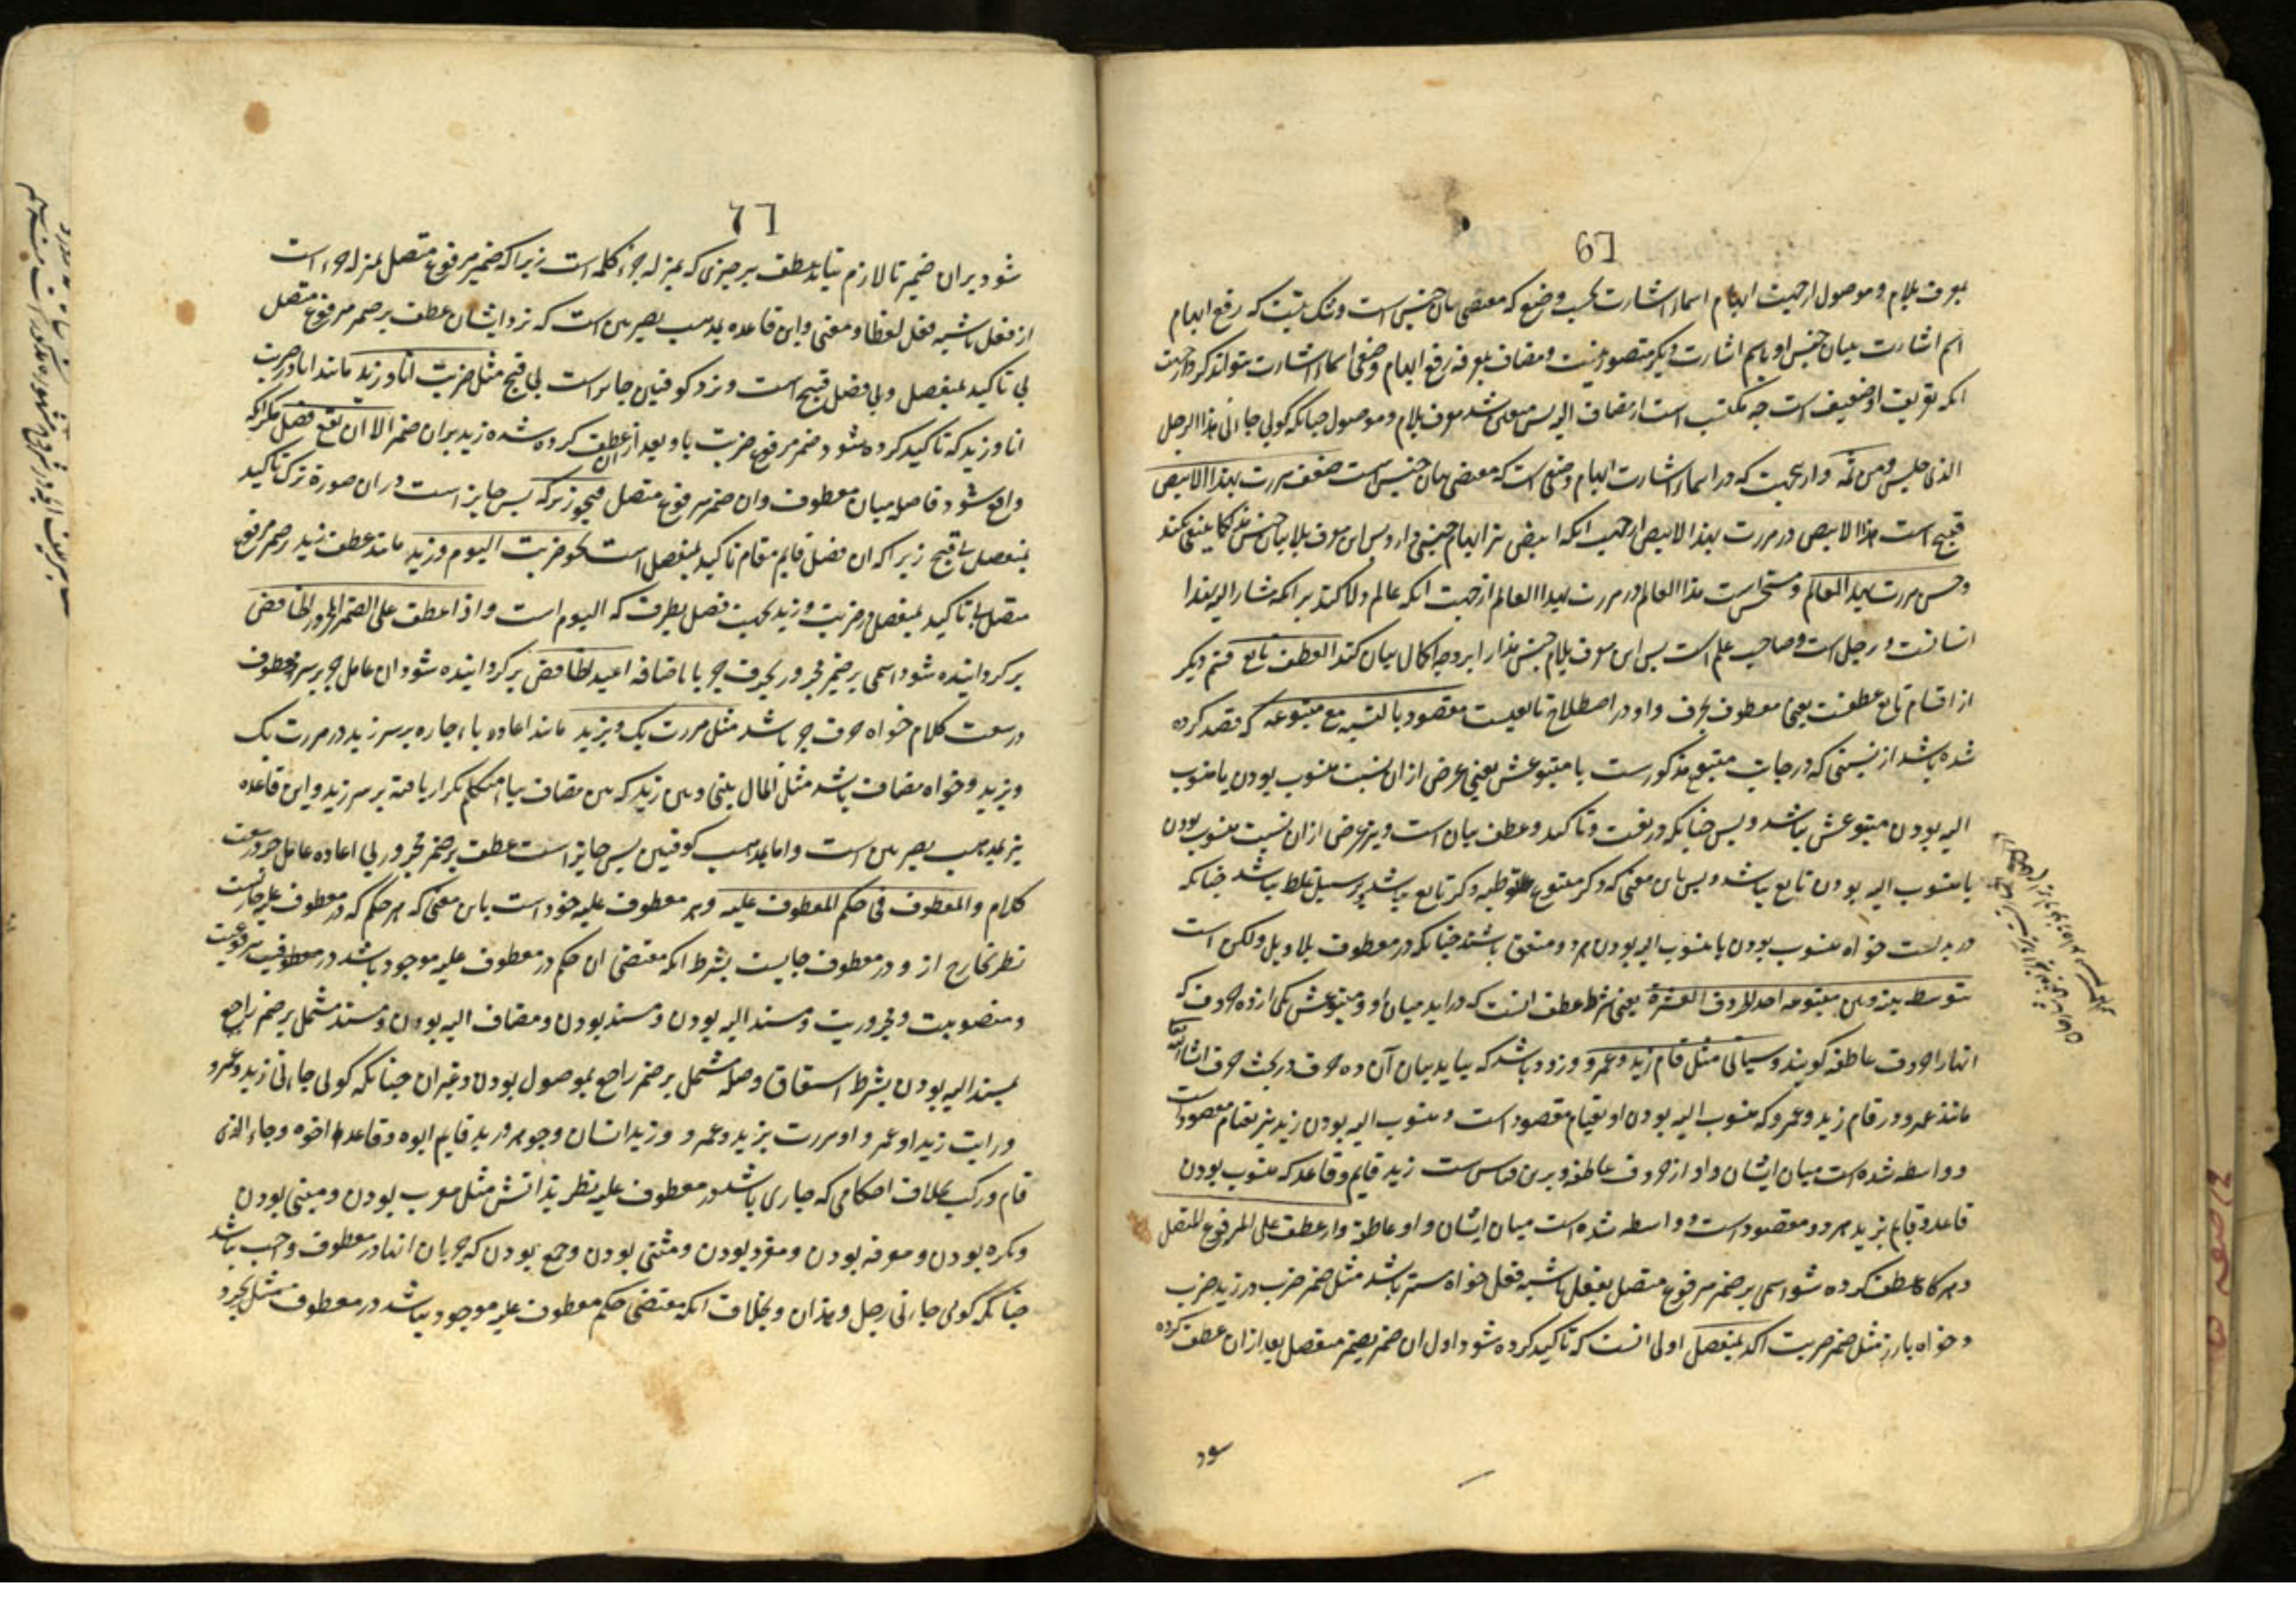 معرف بلام و موصول از جهت ابهام اسماء اشارت بحسب وضع که مقتضی بیان جنس است و شک نیست که رفع ابهام
اسم اشارت بیان جنس او باسم اشارت دیگر متصور نیست و مضاف بمعرفه رفع ابهام وضعی اسماء اشارت نتواند کرد از جهت
انکه تعریف او ضعیف است چه مکتسب است از مضاف الیه پس معین شد معرف بلام و موصول چنانکه گویی جاءنی هذا الرجل
الذی جلس ومن ثمه و از جهت که در اسماء اشارت ابهام وضعی است که مقتضی بیان جنس است ضعف مررت بهذا الابیض
قبیح است هذا الابیض در مررت بهذا الابیض از جهت انکه ابیض نیز ابهام جنسی دارد پس این معرف بلام بیان جنس هذا کما ینبغی نکند
وحسن مررت بهذا العالم و مستحسن است هذا العالم در مررت بهذا العالم از جهت انکه عالم دلالت کند بر انکه مشار الیه بهذا
انسانست و رجل است و صاحب علم است پس این معرف بلام جنس هذا را بر وجه اکمال بیان کند العطف تابع قسم دیگر
از اقسام تابع عطفست یعنی معطوف بحرف و او در اصطلاح تابعیست مقصود بالنسبه مع متبوعه که قصد کرده
شده باشد از نسبتی که در جانب متبوع مذکورست با متبوعش یعنی غرض از ان نسبت منسوب بودن یا منسوب
الیه بودن متبوعش نباشد و بس چنانکه در نعت و تاکید و عطف بیان است و نیز غرض از ان نسبت منسوب بودن
یا منسوب الیه بودن تابع نباشد و بس باین معنی که ذکر متبوع توطیه ذکر تابع باشد یا بر سبیل غلط باشد چنانکه
در بدلست خواه منسوب بودن یا منسوب الیه بودن هر دو متفق باشند چنانکه در معطوف بلا و بل و لکن است
یتوسط بینه و بین متبوعه احد الحروف العشرة یعنی شرط عطف انست که در اید میان او و متبوعش یکی از ده حروف که
انها را حروف عاطفه گویند وسیأتی مثل قام زید و عمرو و زود باشد که بیاید بیان آن ده حرف در بحث حرف انشاء الله
مانند عمرو در قام زید و عمرو که منسوب الیه بودن او بقیام مقصود است و منسوب الیه بودن زید نیز بقیام مقصود است
و واسطه شده است میان ایشان واو از حروف عاطفه و برین قیاس ست زید قایم وقاعد که منسوب بودن
قاعد و قایم بزید هر دو مقصود است و واسطه شده است میان ایشان واو عاطفه واذا عطف علی المرفوع المتصل
و هر گاه عطف کرده شود اسمی بر ضمیر مرفوع متصل بفعل یا شبه فعل خواه مستتر باشد مثل ضمیر ضرب در زید ضرب
و خواه بارز مثل ضمیر ضربت اکد بمنفصل اولی انست که تاکید کرده شود اول ان ضمیر بضمیر منفصل بعد از ان عطف کرده
شود
شود بران ضمیر تا لازم نیاید عطف بر چیزی که بمنزله جزء کلمه است زیرا که ضمیر مرفوع متصل بمنزله جزء است
از فعل یا شبه فعل لفظا و معنی و این قاعده بمذهب بصریین است که نزد ایشان عطف بر ضمیر مرفوع متصل
بی تاکید بمنفصل و بی فصل قبیح است و نزد کوفیین جایز است بی قبح مثل ضربت انا و زید مانند انا در ضربت
انا و زید که تاکید کرده شود ضمیر مرفوع ضربت باو بعد از ان عطف کرده شده زید بران ضمیر الا ان یقع فصل مگر انکه
واقع شود فاصل میان معطوف و ان ضمیر مرفوع متصل فیجوز ترکه پس جایز است در ان صورة ترک تاکید
بمنفصل بی قبح زیرا که ان فصل قایم مقام تاکید بمنفصل است نحو ضربت الیوم وزید مانند عطف زید بر ضمیر مرفوع
متصل بی تاکید بمنفصل در ضربت و زید بجهت فصل بظرف که الیوم است واذا عطف علی الضمیر المجرور الخافض
بر گردانیده شود اسمی بر ضمیر مجرور بحرف جر یا باضافه اعید الخافض بر گردانیده شود ان عامل جر بر سر معطوف
در سعت کلام خواه حرف جر باشد مثل مررت بک و بزید مانند اعاده باء جاره بر سر زید در مررت بک
و بزید و خواه مضاف باشد مثل المال بینی و بین زید که بین مضاف بیاء متکلم تکرار یافته بر سر زید و این قاعده
نیز بمذهب بصریین است و اما بمذهب کوفیین پس جایز است عطف بر ضمیر مجرور بی اعاده عامل جر در سعت
کلام والمعطوف فی حکم المعطوف علیه و هر معطوف در حکم معطوف علیه خود است باین معنی که هر حکم که در معطوف علیه جاریست
نظر بخارج از و در معطوف جاریست بشرط انکه مقتضی ان حکم در معطوف علیه موجود باشد در معطوف نیز مرفوعیت
و منصوبیت و مجروریت و مسند الیه بودن و مسند بودن و مضاف الیه بودن و مسند مشتمل بر ضمیر راجع
بمسند الیه بودن بشرط اشتقاق و صله مشتمل بر ضمیر راجع بموصول بودن و غیر ان چنانکه گویی جاءنی زید و عمرو
و رایت زیدا و عمروا و مررت بزید و عمرو و زید انسان و جوهر و زید قایم ابوه و قاعد اخوه و جاء الذی
قام و رکب بخلاف احکامی که جاری باشد در معطوف علیه نظر بذاتش مثل معرب بودن و مبنی بودن
و نکره بودن و معرفه بودن و مفرد بودن و مثنی بودن و جمع بودن که جریان انها در معطوف واجب نباشد
چنانکه گویی جاءنی رجل و هذان و بخلاف انکه مقتضی حکم معطوف علیه موجود نباشد در معطوف مثل تجرد